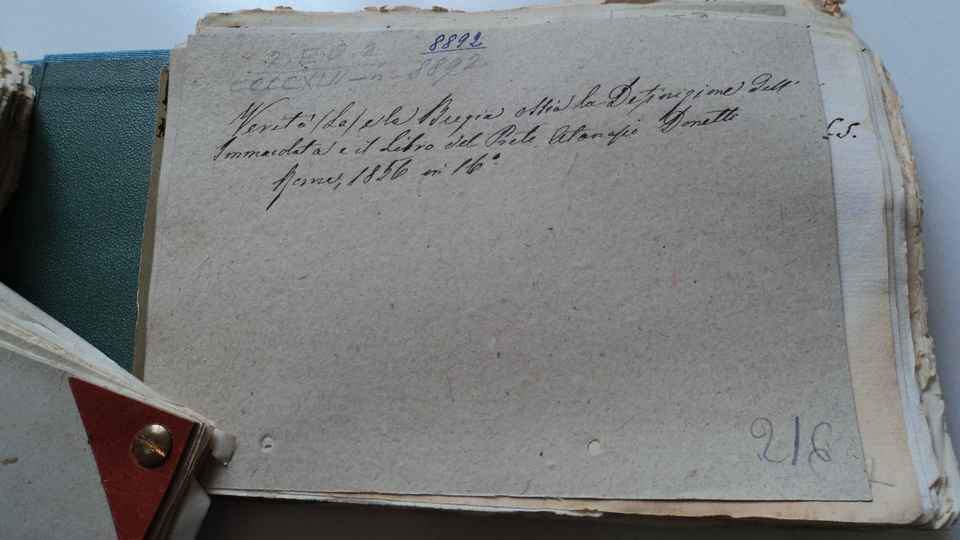 8892
2 E 0 2
CCCXLII - n - 8892
Verità (La) e la Bugia ossia la Definizione dell'
Immacolata e il Libro del Prete Atanasio Donetti
Roma, 1856 in 16°
216